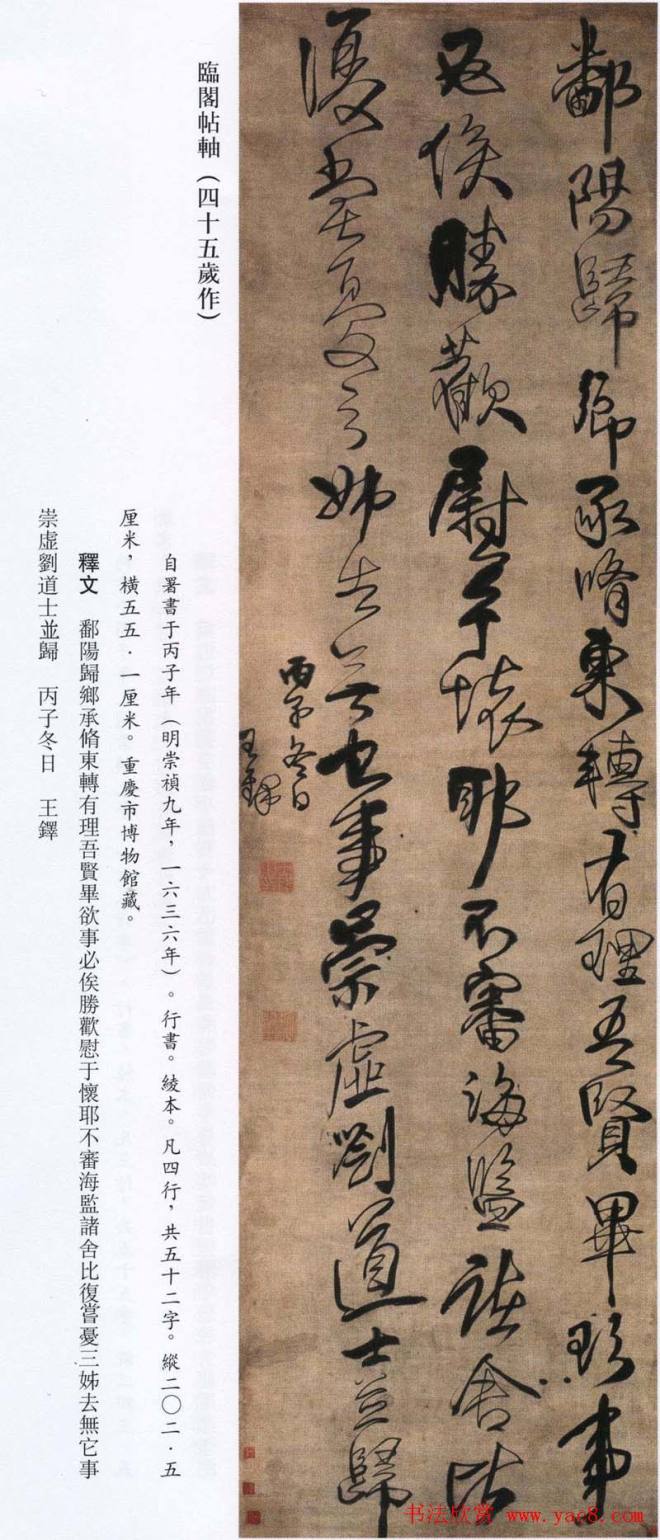 鄱陽歸鄉承脩東轉有理吾賢畢欲事
必俟勝歡慰于懷耶不審海監諸舍比
復嘗憂三姊去無它事崇虛劉道士並歸
丙子冬日
王鐸
臨閣帖軸（四十五歲作）
自署書于丙子年（明崇禎九年，一六三六年）。行書。綾本。凡四行，共五十二字。縱二〇二·五
厘米，橫五五·一厘米。重慶市博物館藏。
釋文 鄱陽歸鄉承脩東轉有理吾賢畢欲事必俟勝歡慰于懷耶不審海監諸舍比復嘗憂三姊去無它事
崇虛劉道士並歸 丙子冬日 王鐸
书法欣赏 www.yac8.com